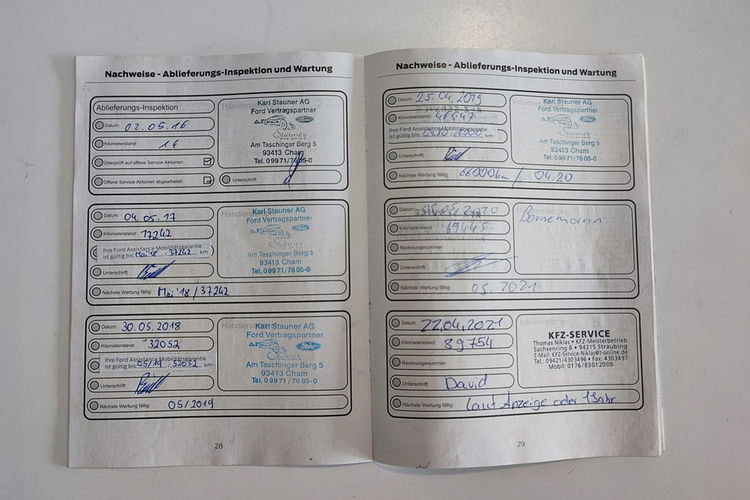 Nachweise - Ablieferungs-Inspektion und Wartung
Ablieferungs-Inspektion
Datum: 02.05.16
Kilometerstand: 16
Überprüft auf offene Service Aktionen:
Offene Service Aktionen abgearbeitet:
Unterschrift:
Karl Stauner AG
Ford Vertragspartner
Ford
Stauner
Am Taschinger Berg 5
93413 Cham
Tel. 09971/7605-0
Datum: 04.05.17
Kilometerstand: 17242
Ihre Ford Assistance Mobilitätsgarantie
ist gültig bis: Mai'18 / 37242 km
Unterschrift:
Nächste Wartung fällig: Mai'18 / 37242
Karl Stauner AG
Ford Vertragspartner
Stauner
Am Taschinger Berg 5
93413 Cham
Tel. 09971/7605-0
Datum: 30.05.2018
Kilometerstand: 32052
Ihre Ford Assistance Mobilitätsgarantie
ist gültig bis: 05/19 / 52052 km
Unterschrift:
Nächste Wartung fällig: 05/2019
Karl Stauner AG
Ford Vertragspartner
Ford
Stauner
Am Taschinger Berg 5
93413 Cham
Tel. 09971/7605-0
28
Nachweise - Ablieferungs-Inspektion und Wartung
Datum: 25.04.2019
Kilometerstand:
Ihre Ford Assistance Mobilitätsgarantie
ist gültig bis: km
Unterschrift:
Nächste Wartung fällig: 66000km / 04.20
Karl Stauner AG
Ford Vertragspartner
Ford
Stauner
Am Taschinger Berg 5
93413 Cham
Tel. 09971/7605-0
Datum: 2020
Kilometerstand: 69445
Rechnungsnummer:
Unterschrift:
Nächste Wartung fällig: 05.2021
Bornemann
Datum: 22.04.2021
Kilometerstand: 89754
Rechnungsnummer:
Unterschrift: David
Nächste Wartung fällig: laut Anzeige oder 1 Jahr
KFZ-SERVICE
Thomas Niklas • KFZ-Meisterbetrieb
Sachsenring 6 • 94315 Straubing
E-Mail: KFZ-Service-Niklas@t-online.de
Tel.: 09421/4303496 • Fax: 4303497
Mobil: 0176/83012008
29